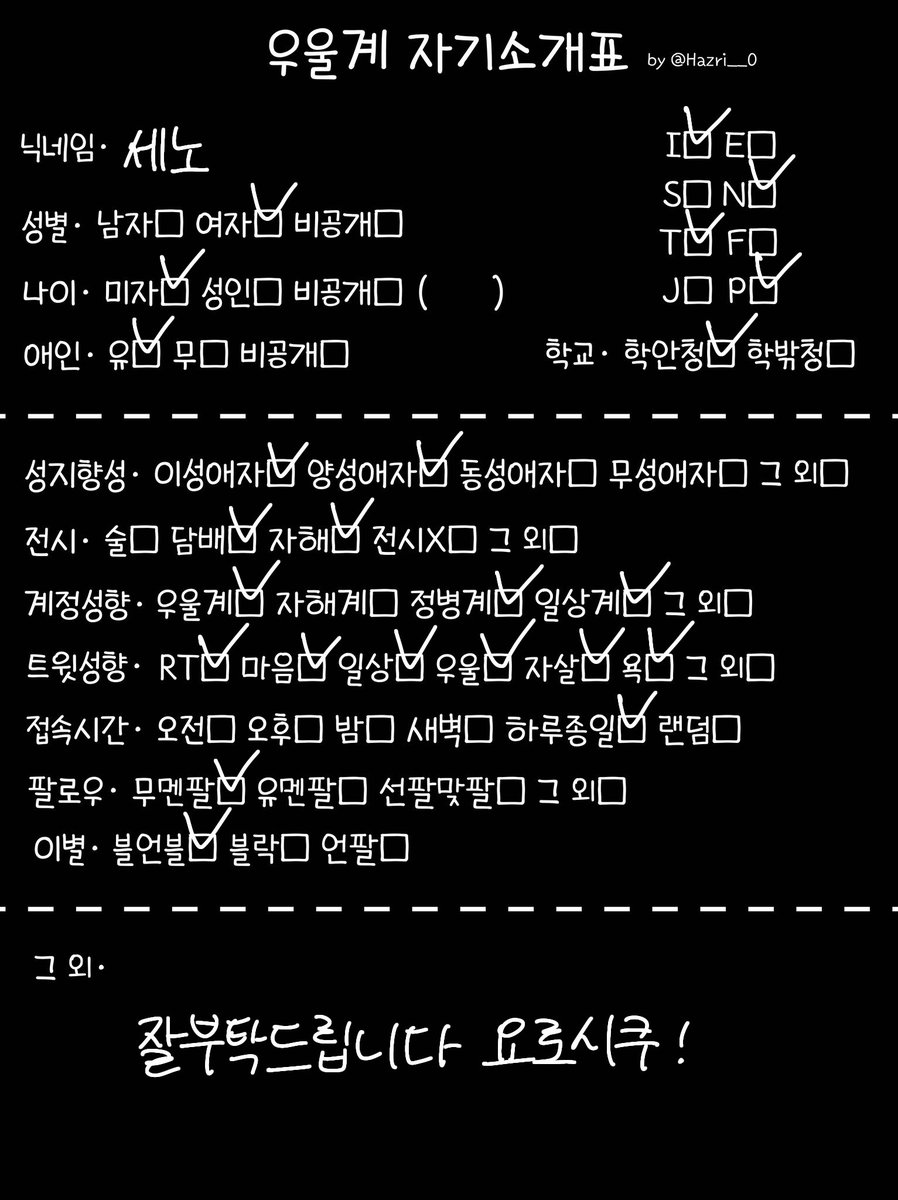 우울계 자기소개표 by @Hazri__0
닉네임· 세노
I☑ E☐
S☐ N☑
성별· 남자☐ 여자☑ 비공개☐
T☑ F☐
나이· 미자☑ 성인☐ 비공개☐ (      )
J☐ P☑
애인· 유☑ 무☐ 비공개☐
학교· 학안청☑ 학밖청☐
성지향성· 이성애자☑ 양성애자☑ 동성애자☐ 무성애자☐ 그 외☐
전시· 술☐ 담배☑ 자해☑ 전시X☐ 그 외☐
계정성향· 우울계☑ 자해계☐ 정병계☑ 일상계☑ 그 외☐
트윗성향· RT☑ 마음☑ 일상☑ 우울☑ 자살☑ 욕☑ 그 외☐
접속시간· 오전☐ 오후☐ 밤☐ 새벽☐ 하루종일☑ 랜덤☐
팔로우· 무멘팔☑ 유멘팔☐ 선팔맞팔☐ 그 외☐
이별· 블언블☑ 블락☐ 언팔☐
그 외·
잘부탁드립니다 요로시쿠!